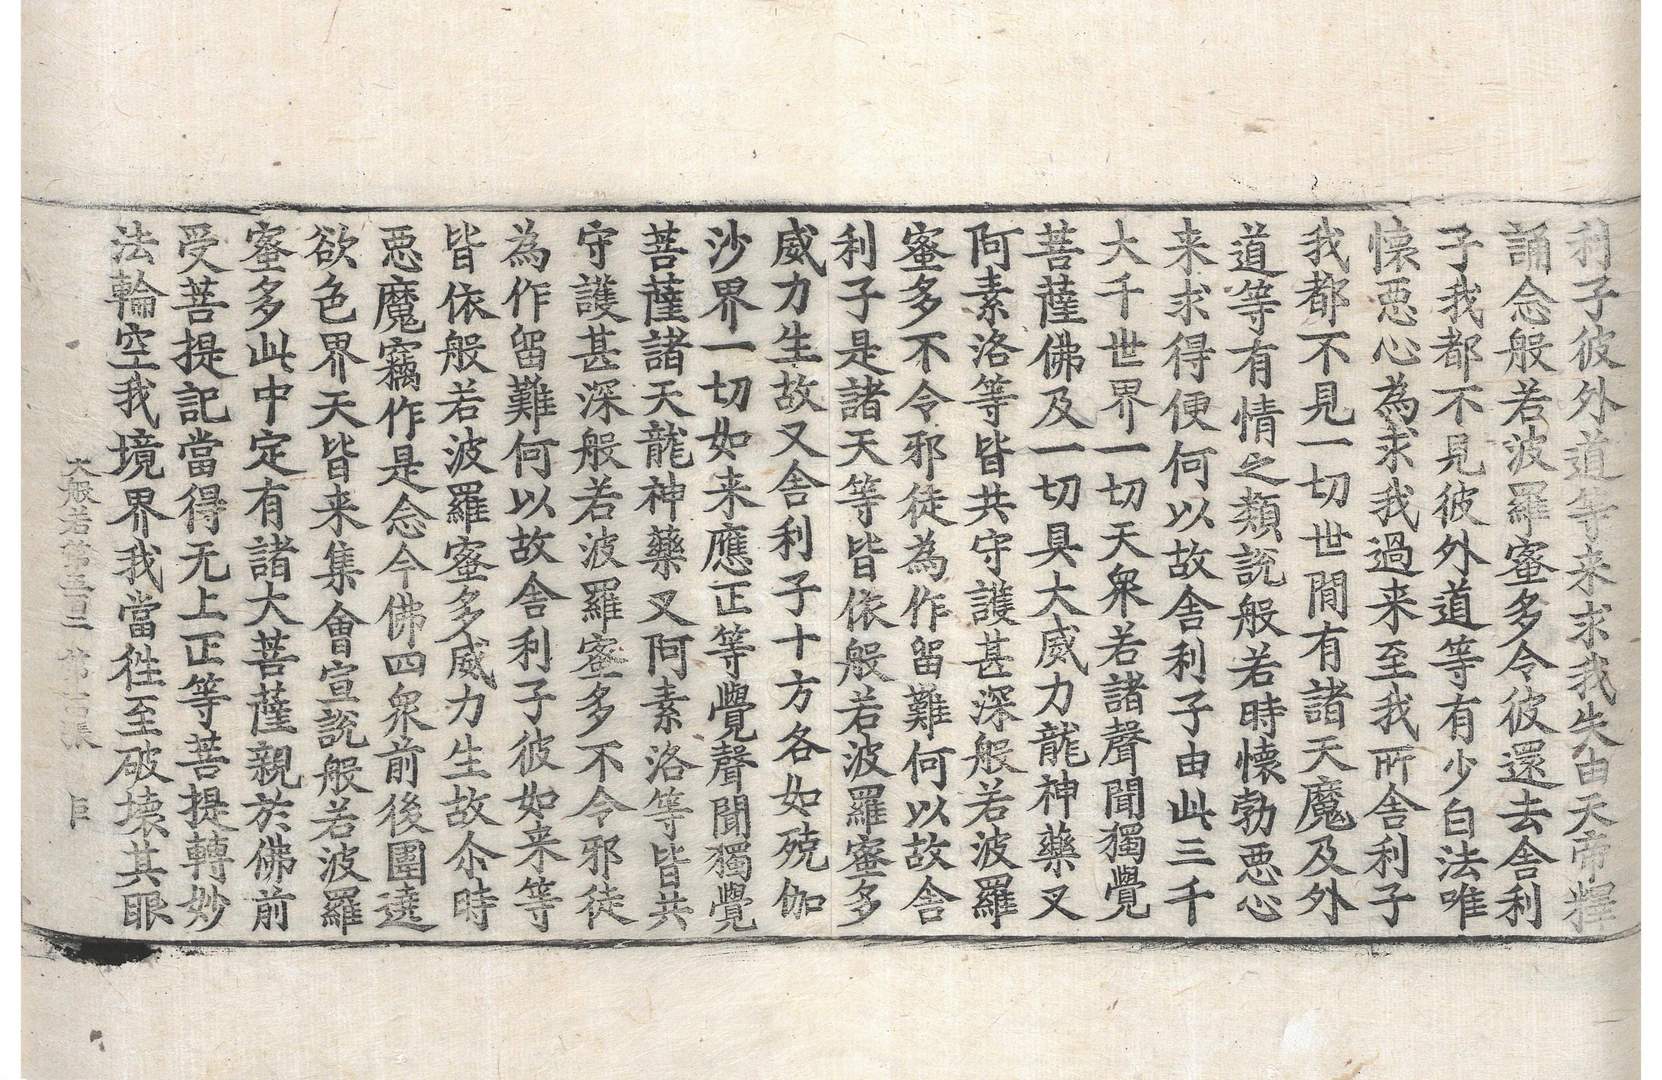 利子彼外道等来求我失由天帝釋
誦念般若波羅蜜多令彼還去舎利
子我都不見彼外道等有少白法唯
懐惡心為求我過来至我所舎利子
我都不見一切世間有諸天魔及外
道等有情之類說般若時懐勃惡心
来求得便何以故舎利子由此三千
大千世界一切天衆若諸聲聞獨覺
菩薩佛及一切具大威力龍神藥叉
阿素洛等皆共守護甚深般若波羅
蜜多不令邪徒為作留難何以故舎
利子是諸天等皆依般若波羅蜜多
威力生故又舎利子十方各如殑伽
沙界一切如来應正等覺聲聞獨覺
菩薩諸天龍神藥叉阿素洛等皆共
守護甚深般若波羅蜜多不令邪徒
為作留難何以故舎利子彼如来等
皆依般若波羅蜜多威力生故尒時
惡魔竊作是念今佛四衆前後圍遶
欲色界天皆来集會宣說般若波羅
蜜多此中定有諸大菩薩親於佛前
受菩提記當得无上正等菩提轉妙
法輪空我境界我當徃至破壊其眼
大般若第五百二 第 張